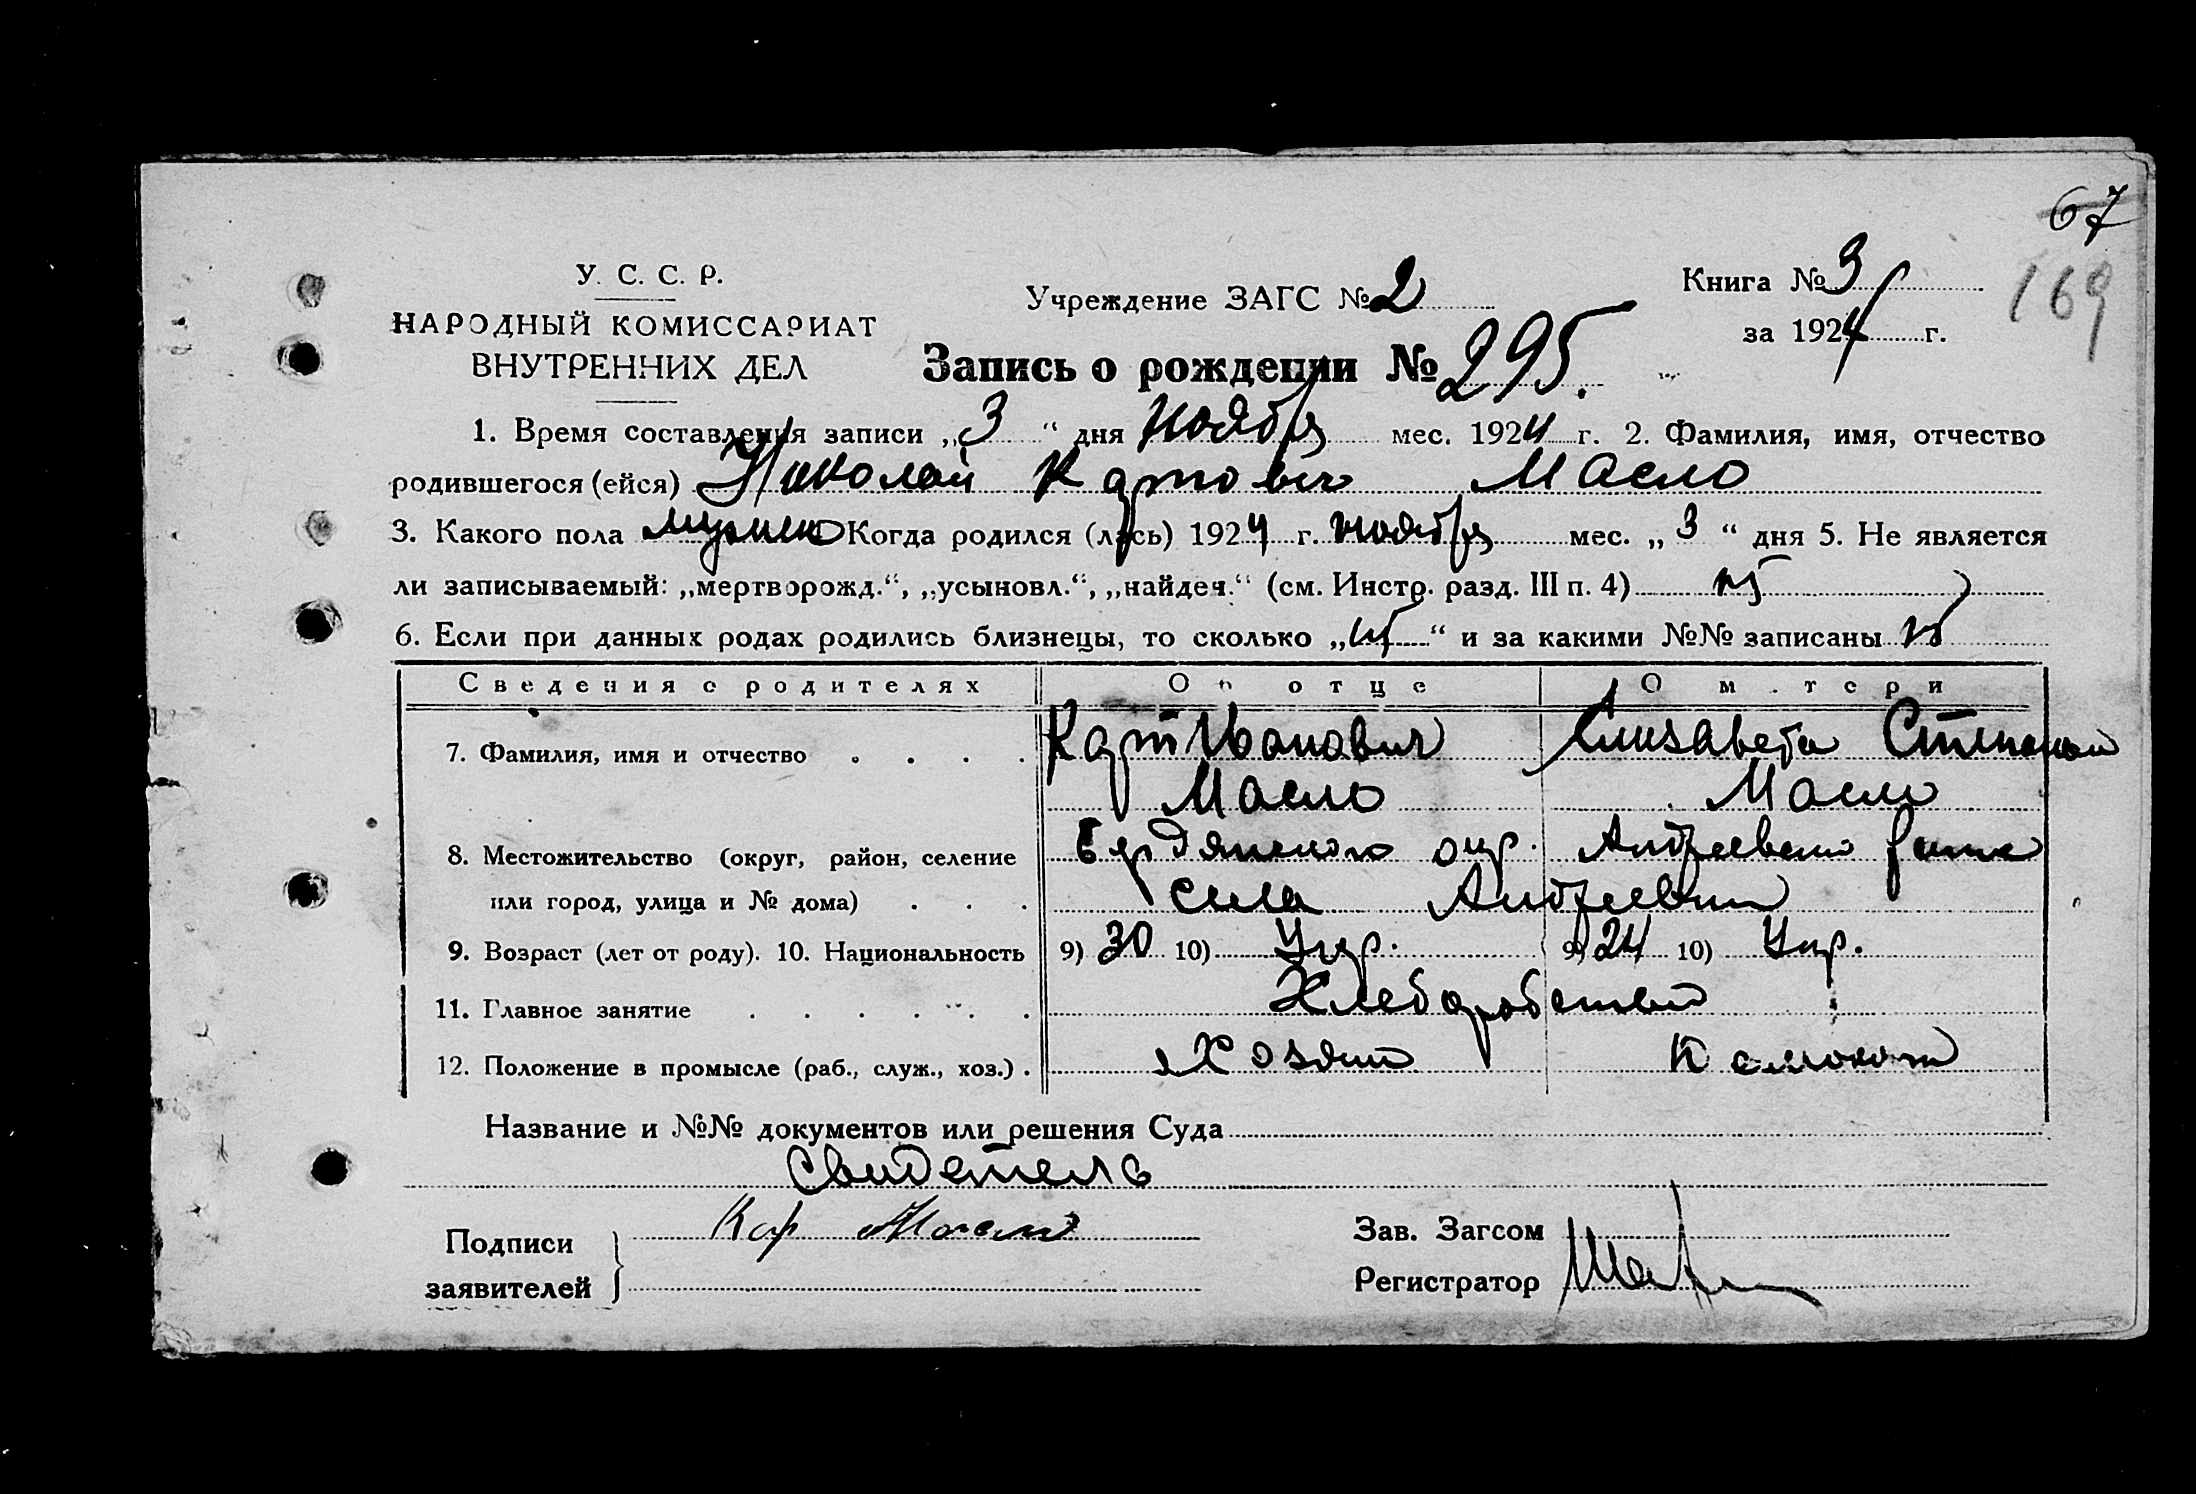 67
169
У. С. С. Р.
НАРОДНЫЙ КОМИССАРИАТ
ВНУТРЕННИХ ДЕЛ
Учреждение ЗАГС № 2
Книга № 3
за 1924 г.
Запись о рождении № 295.
1. Время составления записи „3“ дня ноября мес. 1924 г. 2. Фамилия, имя, отчество
родившегося (ейся) Николай Карпович Масло
3. Какого пола Когда родился (лась) 1924 г. ноября мес. „3“ дня 5. Не является
ли записываемый: „мертворожд.“, „усыновл.“, „найден.“ (см. Инстр. разд. III п. 4)
6. Если при данных родах родились близнецы, то сколько „ “ и за какими №№ записаны
Сведения о родителях Об отце О матери
7. Фамилия, имя и отчество . . . . Карп Иванович Елизавета
Масло Масло
8. Местожительство (округ, район, селение Бердянского окр. Андреевского
или город, улица и № дома) . . . села
9. Возраст (лет от роду). 10. Национальность 9) 30 10) Укр. 9) 24 10) Укр.
11. Главное занятие . . . . . .
12. Положение в промысле (раб., служ., хоз.) . Хозяин
Название и №№ документов или решения Суда
Свидетель
Подписи заявителей Кар Масло
Зав. Загсом
Регистратор